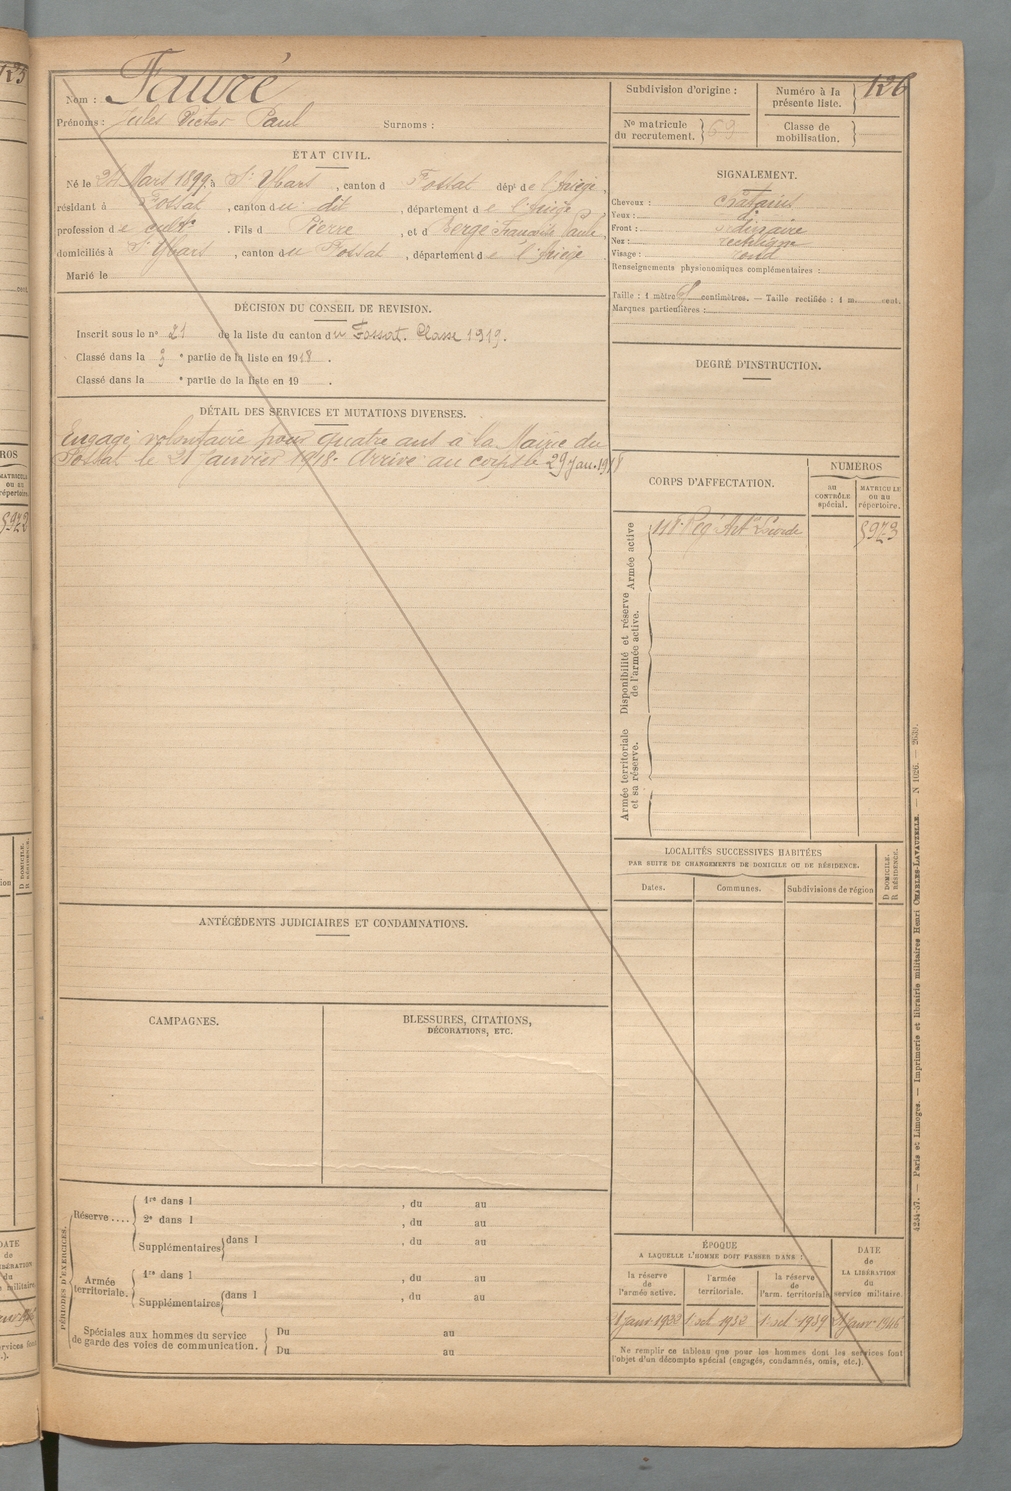 126
Nom : Fauré
Prénoms : Jules Victor Paul Surnoms :
Subdivision d'origine :
Numéro à la présente liste.
No matricule du recrutement. 63
Classe de mobilisation.
ÉTAT CIVIL.
Né le Mars 1899, à St Ybars, canton d Fossat dépt de l'Ariège,
résidant à Fossat, canton du dit, département de l'Ariège,
profession de cultr. Fils d Pierre, et d Bergé Françoise Paule,
domiciliés à St Ybars, canton du Fossat, département de l'Ariège
Marié le
SIGNALEMENT.
Cheveux : châtains
Yeux : d°
Front : ordinaire
Nez : rectiligne
Visage : rond
Renseignements physionomiques complémentaires :
Taille : 1 mètre centimètres. — Taille rectifiée : 1 m. cent.
Marques particulières :
DÉCISION DU CONSEIL DE REVISION.
Inscrit sous le n° 21 de la liste du canton du Fossat. Classe 1919.
Classé dans la e partie de la liste en 1918.
Classé dans la e partie de la liste en 19
DEGRÉ D'INSTRUCTION.
DÉTAIL DES SERVICES ET MUTATIONS DIVERSES.
Engagé volontaire pour quatre ans à la Mairie du
Fossat le 21 janvier 1918. Arrivé au corps le 29 Jan. 1918
CORPS D'AFFECTATION.
NUMÉROS
AU CONTRÔLE spécial.
MATRICULE ou au répertoire.
Armée active
118e Rég Artie Lourde
5973
Disponibilité et réserve de l'armée active.
Armée territoriale et sa réserve.
LOCALITÉS SUCCESSIVES HABITÉES
PAR SUITE DE CHANGEMENTS DE DOMICILE OU DE RÉSIDENCE.
Dates. Communes. Subdivisions de région
D DOMICILE.
R RÉSIDENCE.
ANTÉCÉDENTS JUDICIAIRES ET CONDAMNATIONS.
CAMPAGNES.
BLESSURES, CITATIONS,
DÉCORATIONS, ETC.
PÉRIODES D'EXERCICES.
Réserve ....
1re dans l , du au
2e dans l , du au
Supplémentaires dans l , du au
Armée territoriale.
1re dans l , du au
Supplémentaires dans l , du au
Spéciales aux hommes du service
de garde des voies de communication.
Du au
Du au
ÉPOQUE
A LAQUELLE L'HOMME DOIT PASSER DANS :
la réserve de l'armée active.
l'armée territoriale.
la réserve de l'arm. territoriale
DATE de LA LIBÉRATION du service militaire.
1 oct 1939
Janv 1946
Ne remplir ce tableau que pour les hommes dont les services font
l'objet d'un décompte spécial (engagés, condamnés, omis, etc.).
4234-37. — Paris et Limoges. — Imprimerie et librairie militaires Henri CHARLES-LAVAUZELLE. — N 1026. — 2639.